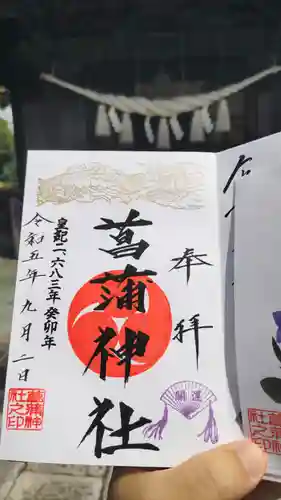 奉拝
菖蒲神社
開運
皇紀二、六八三年 癸卯年
令和五年 九月 二日
菖蒲神
社之印